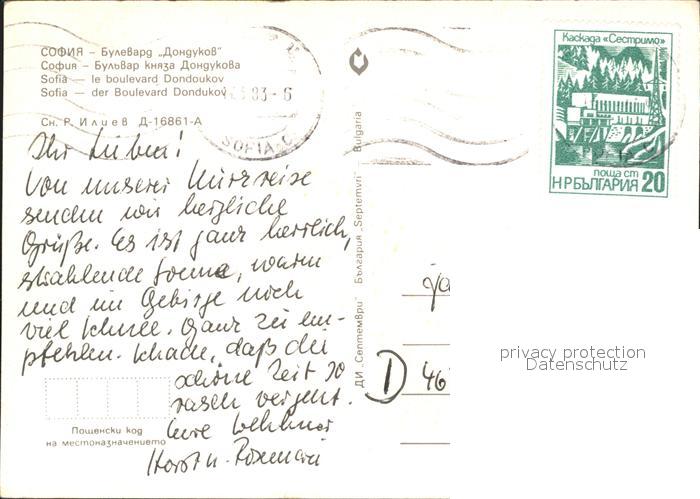 СОФИЯ – Булевард „Дондуков"
София – Бульвар князя Дондукова
Sofia — le boulevard Dondoukov
Sofia — der Boulevard Dondukov
Сн. Р. Илиев Д-16861-А
83-6
SOFIA.C
Каскада «Сестримо»
поща ст
НРБЪЛГАРИЯ 20
Ihr Lieben!
Von unserer Kurzreise
senden wir herzliche
Grüße. Es ist ganz herrlich,
strahlende Sonne, warm
und im Gebirge noch
viel Schnee. Ganz zu em-
pfehlen. Schade, daß die
schöne Zeit so
rasch vergeht.
Eure
Horst u. Rosemarie
Пощенски код
на местоназначението
ДИ „Септември" България „Septemvri" Bulgaria
D 46
privacy protection
Datenschutz